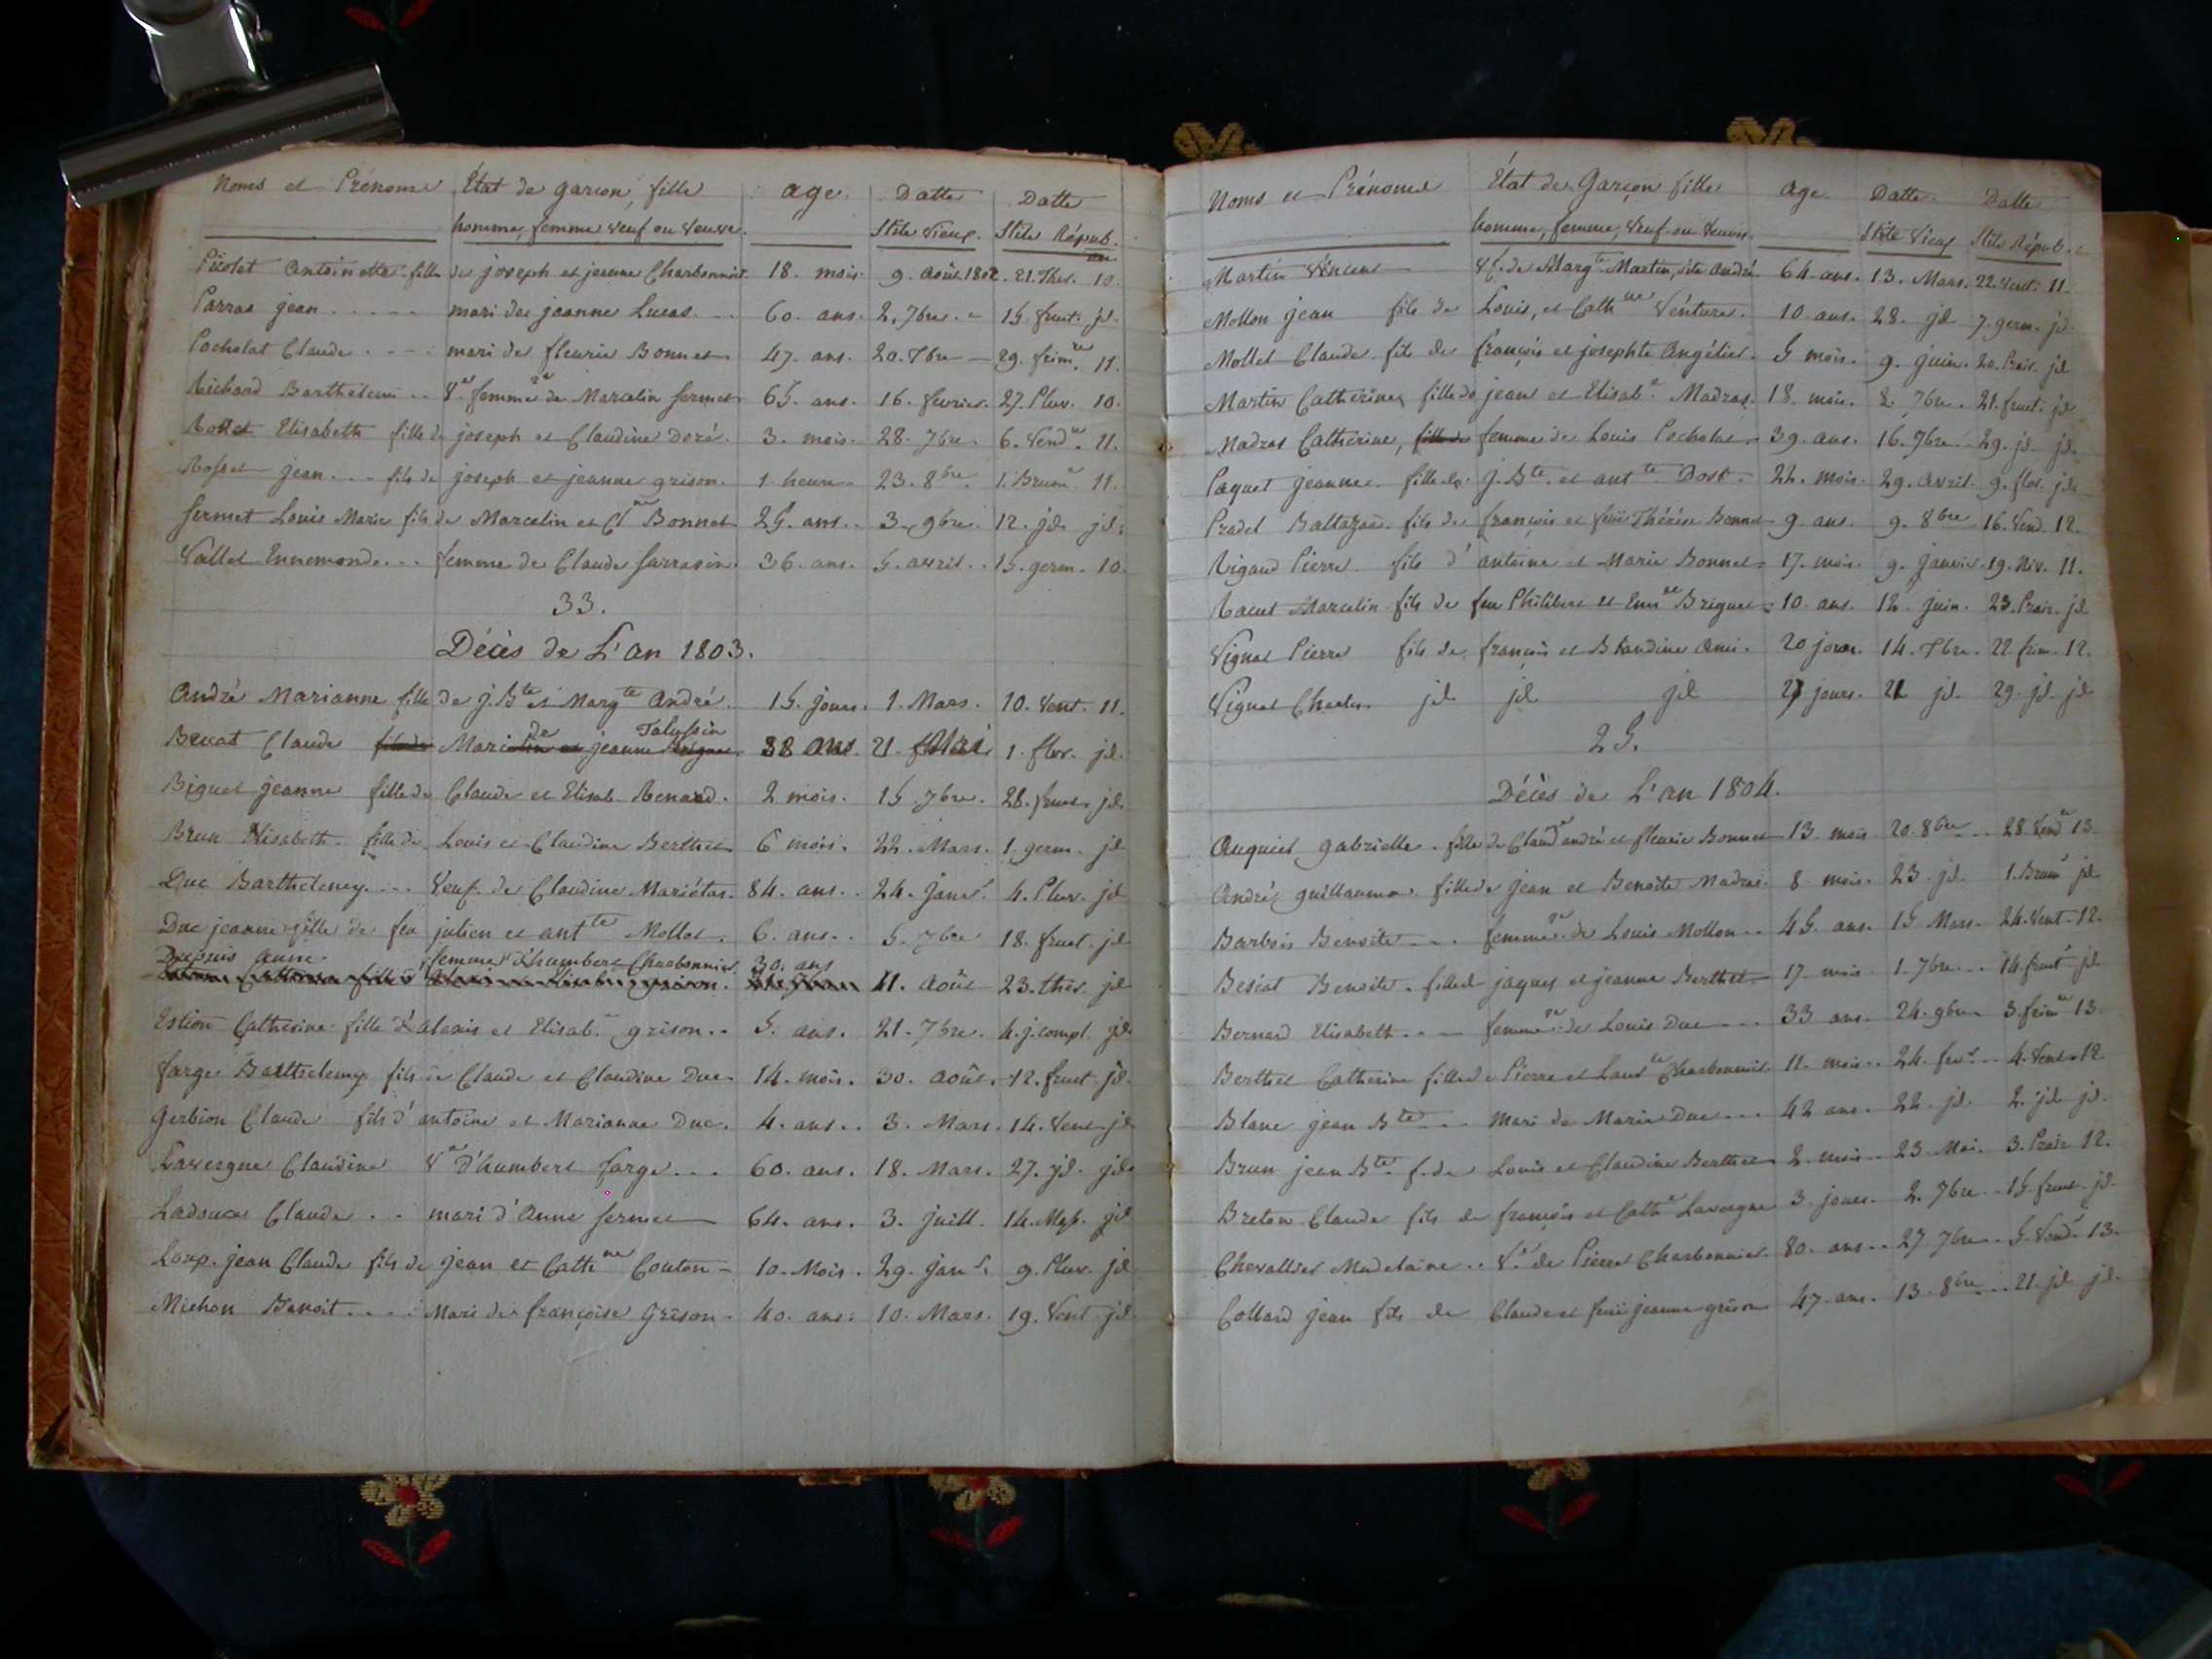 Noms et Prénoms État de garçon, fille age. Datte Datte
homme, femme, veuf ou veuve. Stile Vieux. Stile Répub.
an.
Picolet Antoinette fille de joseph et jeanne Charbonnier 18. mois. 9. Août 1802. 21. Ther. 10.
Parras jean ..... mari de jeanne Lucas. 60. ans. 2. 7bre. 15. fruct. jd.
Pocholat Claude .... mari de fleurie Bonnet 47. ans. 20. 7bre 29. frim.re 11.
Richard Barthelemi .. 2de femme de Marcelin fermet 65. ans. 16. fevrier. 27. Pluv. 10.
Rollet Elisabeth fille de joseph et Claudine Doré. 3. mois. 28. 7bre. 6. Vend.re 11.
Rosset jean ... fils de joseph et jeanne grison. 1. heure. 23. 8bre. 1. Brum.re 11.
fermet Louis Marie fils de Marcelin et Cl. Bonnet 25. ans. 3. 9bre. 12. jd. jd.
Vallet Ennemonde ... femme de Claude Sarrasin. 36. ans. 5. avril. 15. germ. 10.
33.
Décès de L'an 1803.
André Marianne fille de J. Bte et Margte André. 15. jours. 1. Mars. 10. Vent. 11.
de Talussin
Bruat Claude fils de Mari jeanne 38 ans. 21. Mai 1. flor. jd.
Biguet jeanne fille de Claude et Elisab. Renaud. 2 mois. 15 7bre. 28. fruct. jd.
Brun Elisabeth fille de Louis et Claudine Berthet 6 mois. 22. Mars. 1. germ. jd
Duc Barthelemy .... Veuf de Claudine Mariétas. 84. ans. 24. Janer. 4. Pluv. jd
Duc jeanne fille de feu julien et antte Mollet. 6. ans. 5. 7bre 18. fruct. jd
Dupuis anne. femme d'humbert Charbonnier 30. ans
11. Août 23. ther. jd
Estion Catherine fille d'alexis et Elisab. grison. 5. ans. 21. 7bre. 4. j. compl. jd
farge Barthelemy fils de Claude et Claudine Duc. 14. mois. 30. août. 12. fruct. jd.
Gerbion Claude fils d'antoine et Marianne Duc. 4. ans. 3. Mars. 14. Vent. jd
Lavergne Claudine Ve d'humbert farge ... 60. ans. 18. Mars. 27. jd. jd.
Ladouce Claude .. mari d'Anne fermet 64. ans. 3. juill. 14. Mess. jd
Loup jean Claude fils de jean et Cathne Couton 10. Mois. 29. janr. 9. Pluv. jd
Michon Benoit .... Mari de françoise Grison 40. ans. 10. Mars. 19. Vent. jd.
Noms et Prénoms État de Garçon fille age. Datte Datte
homme, femme, Veuf ou Veuve. Stile Vieux Stile Répub.
Martin Vincent Vf. de Margte Martin, dite André 64. ans. 13. Mars. 22. Vent. 11.
Mollon jean fils de Louis, et Cathne Venture. 10. ans. 28. jd 7. germ. jd.
Mollet Claude fils de françois et josephte Angélier 5 mois. 9. juin. 20. Prair. jd
Martin Catherine fille de jean et Elisab. Madras. 18. mois. 8. 7bre. 21. fruct. jd
Madras Catherine, fille de femme de Louis Pocholat 39. ans. 16. 7bre. 29. jd. jd.
Paquet jeanne fille de J. Bte. et antte Dost. 22. mois. 29. avril. 9. flor. jd
Pradel Baltazar fils de françois et feüe Thérèse Bonnet 9. ans. 9. 8bre 16. Vend. 12.
Rigaud Pierre fils d'antoine et Marie Bonnet 17. mois. 9. janvier. 19. Niv. 11.
Racut Marcelin fils de feu Philibert et Ennde Briguet 10. ans. 12. juin. 23. Prair. jd
Vignat Pierre fils de françois et Blandine Ami. 20 jours. 14. 7bre. 22. frim. 12.
Vignat Charles jd jd jd 27 jours. 21 jd. 29. jd. jd
25.
Décès de L'an 1804.
Auguiet gabrielle fille de Claud andré et fleurie Bonnet 13. mois 20. 8bre 28. Vend.re 13
André guillauma. fille de jean et Benoite Madras. 8. mois. 23. jd. 1. Brum.re jd
Barbois Benoite ... femme de Louis Mollon .. 45. ans. 15 Mars. 24. Vent. 12.
Besiat Benoite. fille de jaques et jeanne Berthet 17. mois 1. 7bre ... 14. fruct. jd
Bernard Elisabeth ... femme de Louis Duc ... 33 ans. 24. 9bre 3. frim.re 13.
Berthet Catherine fille de Pierre et Laurte Charbonnier 11. mois .. 24. fevr. .. 4. Vent. 12
Blanc jean Bte ... Mari de Marie Duc ... 42 ans. 22. jd. 2. jd jd.
Brun jean Bte. f. de Louis et Claudine Berthet 2. mois .. 23. Mai. 3. Prair. 12.
Breton Claude fils de françois et Cathe Lavergne 3. jours. 2. 7bre .. 15. fruct. jd.
Chevallier Madelaine .. Ve. de Pierre Charbonnier 80. ans .. 27 7bre .. 5. Vend.re 13.
Collard jean fils de Claude et feüe jeanne grison 47. ans. 13. 8bre ... 21. jd jd.